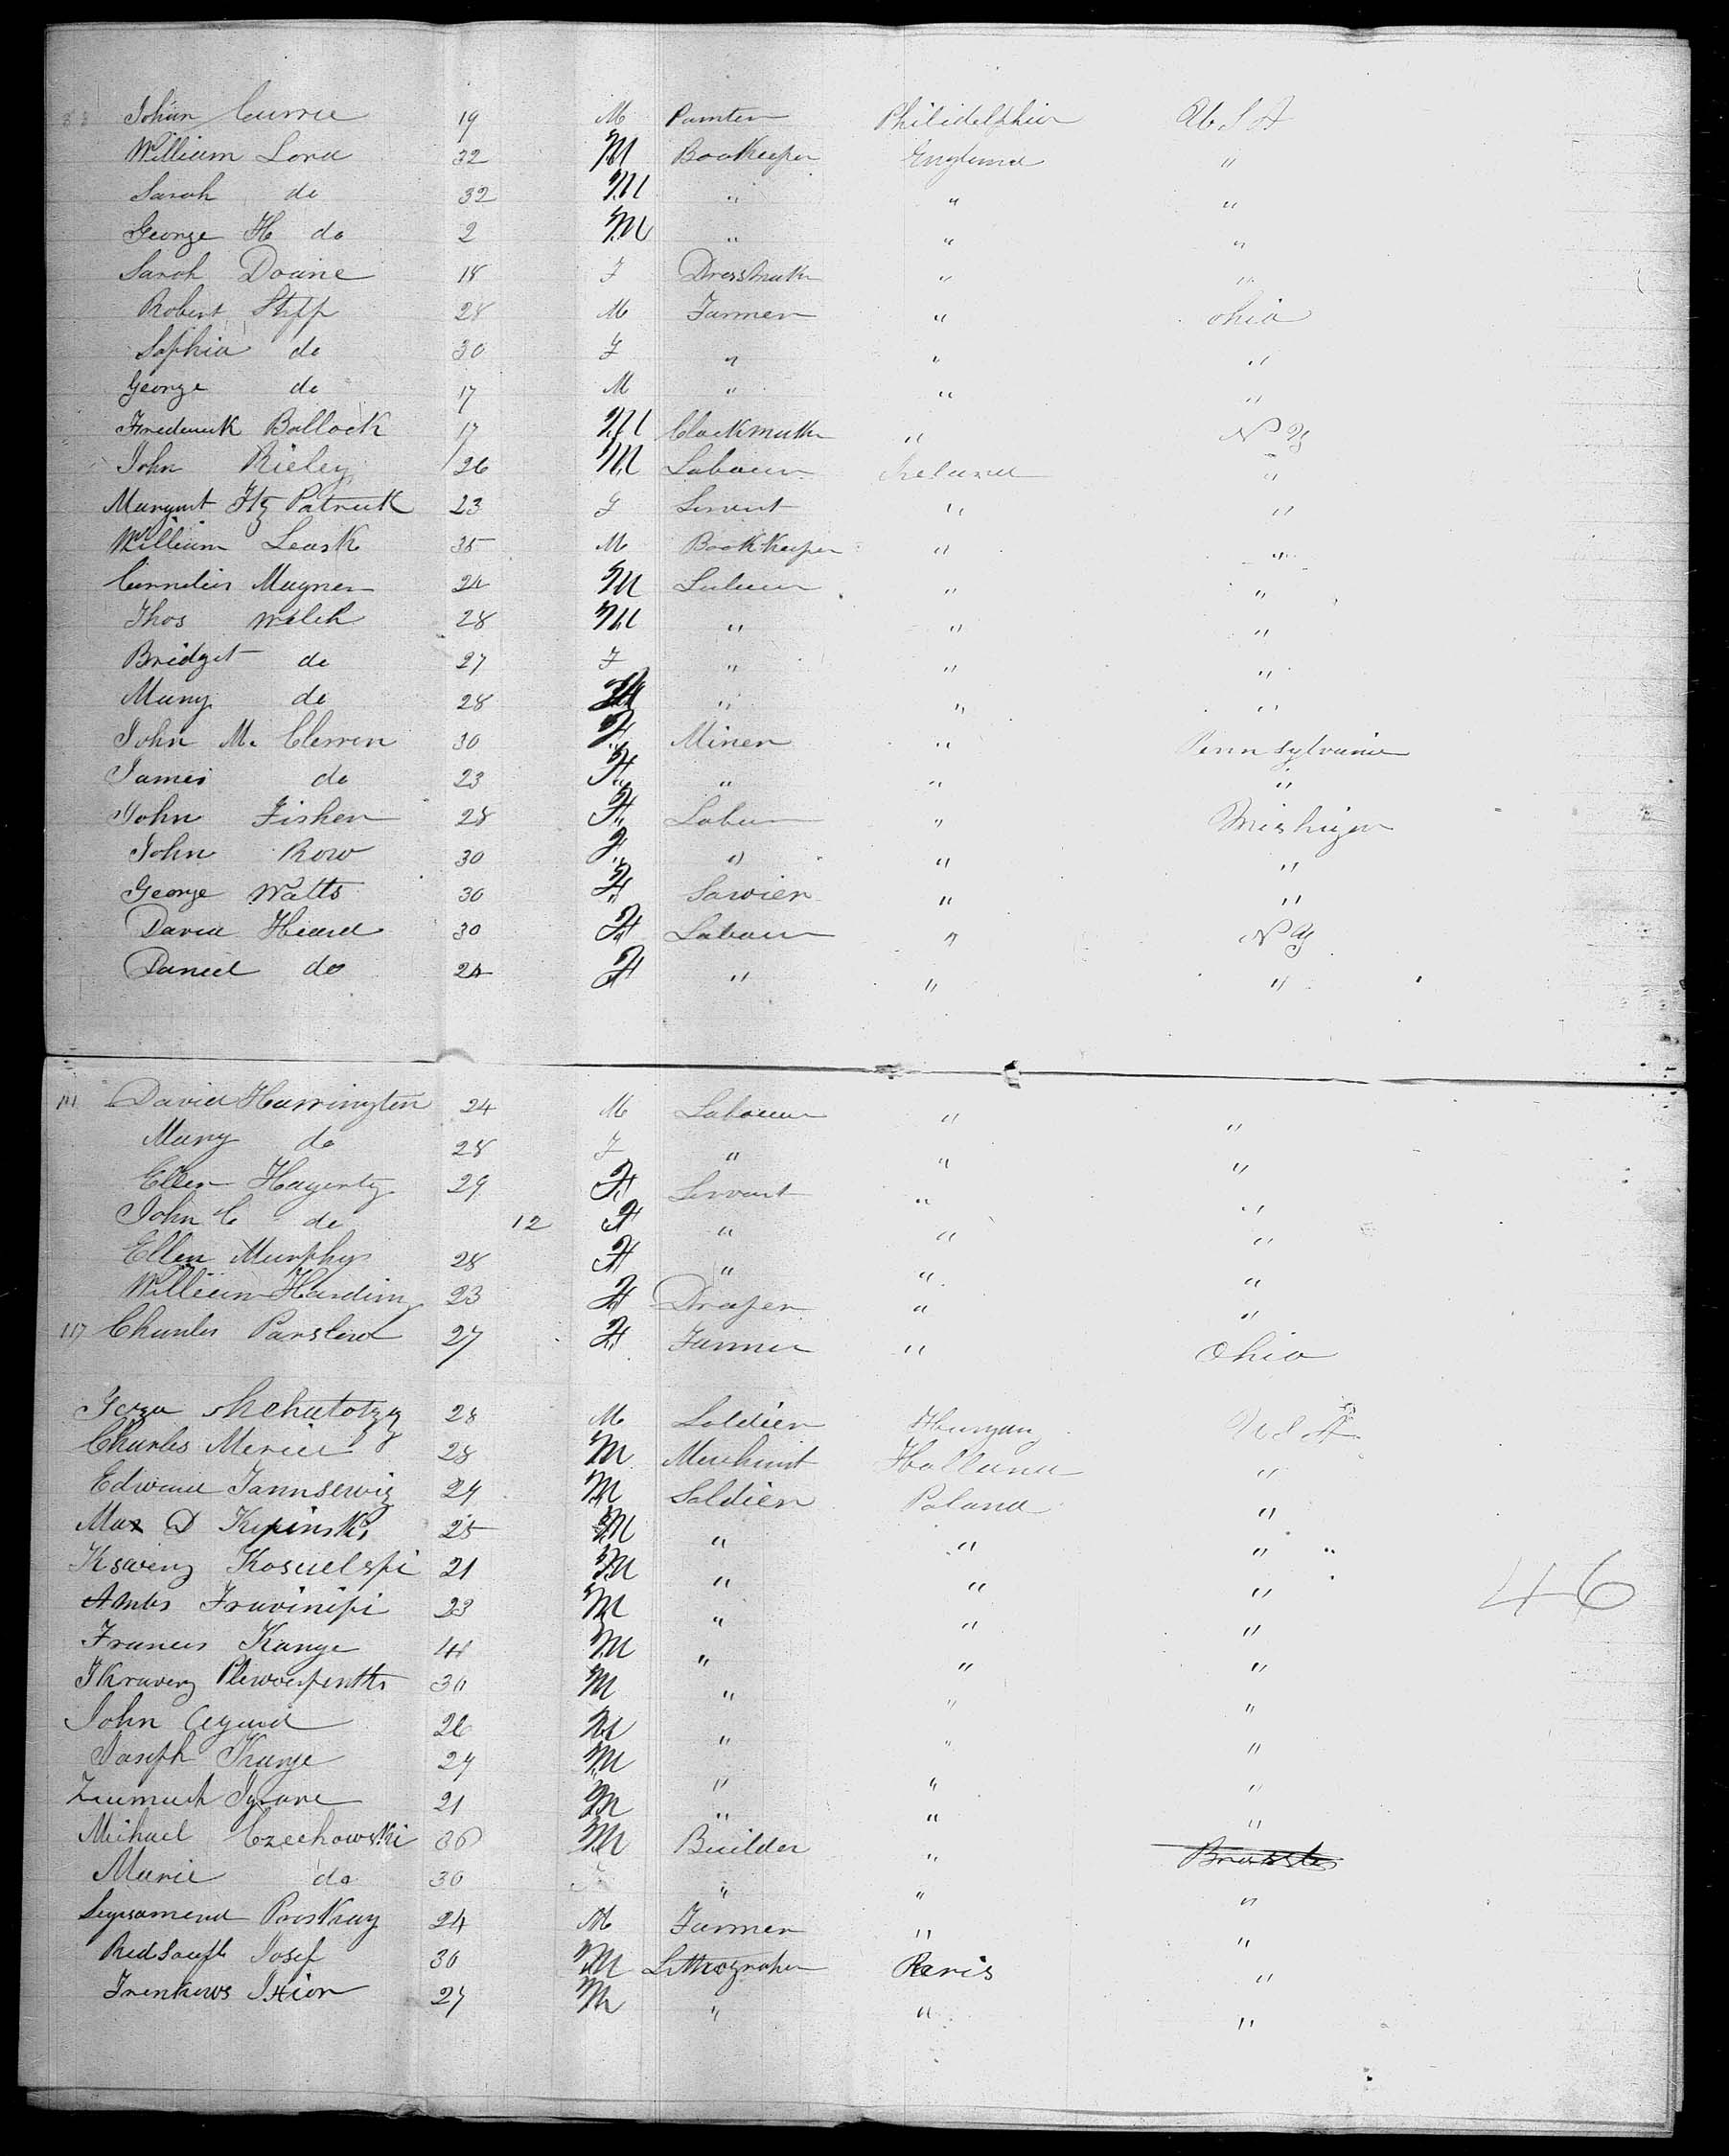 88 Johun Currie 19 M Painter Philidelphia U S A
William Lord 32 M Bookeeper England "
Sarah do 32 M " " "
George H do 2 M " " "
Sarah Doane 18 F Dressmaker " "
Robert 28 M Farmer " Ohio
Sophia do 30 F " " "
George do 17 M " " "
Frederick Ballock 17 M Clockmaker " N Y
John Rieley 26 M Labourer Ireland "
Margaret Fitz Patrick 23 F Servent " "
William Leask 35 M Book Keeper " "
Cornelius Magner 24 M Labourer " "
Thos Welch 28 M " " "
Bridget do 27 F " " "
Mary do 28 " " "
John Mc Clerren 30 F Miner " Pennsylvania
James do 23 F " " "
John Fisher 28 F Labourer " Mishigan
John Row 30 F " " "
George Watts 30 F Sawier " "
David Heard 30 F Labourer " N Y
Daniel do 24 F " " "
111 David Harrington 24 M Labourer " "
Mary do 28 F " " "
Ellen Hagerty 29 F Servant " "
John C do 12 F " " "
Ellen Murphy 28 F " " "
William Hardim 23 F Draper " "
117 Charles Parslow 27 F Farmer " Ohio
28 M Soldier Hungary U S A
Charles 28 M Merchant Holland "
Edward Jannsewiz 24 M Soldier Poland "
Max D Kipinski 25 M " " "
21 M " " "
23 M " " "
Frances Kange 41 M " " "
30 M " " "
John 26 M " " "
Joseph Kange 24 M " " "
21 M " " "
Michael Czechowski 36 M Builder " Brussles
Marie do 30 F " " "
24 M Farmer " "
Josef 30 M Lithographer Paris "
27 M " " "
46